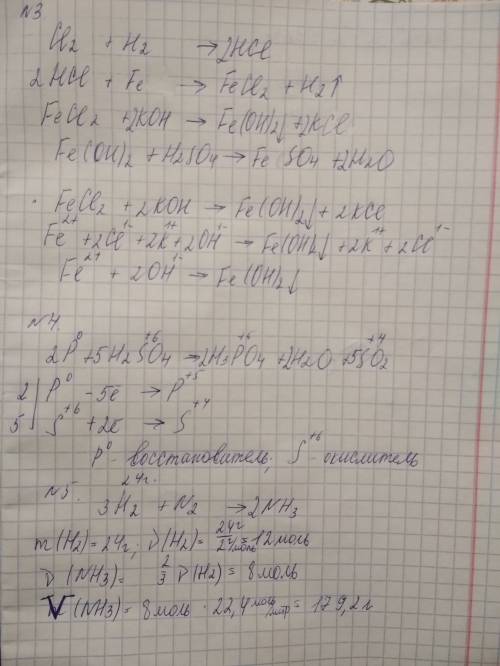 N3
Cl₂ + H₂ → 2HCl
2HCl + Fe → FeCl₂ + H₂↑
FeCl₂ + 2KOH → Fe(OH)₂↓ + 2KCl
Fe(OH)₂ + H₂SO₄ → FeSO₄ + 2H₂O
FeCl₂ + 2KOH → Fe(OH)₂↓ + 2KCl
Fe²⁺ + 2Cl¹⁻ + 2K¹⁺ + 2OH¹⁻ → Fe(OH)₂↓ + 2K¹⁺ + 2Cl¹⁻
Fe²⁺ + 2OH¹⁻ → Fe(OH)₂↓
N4.
2P⁰ + 5H₂S⁺⁶O₄ → 2H₃P⁺⁵O₄ + 2H₂O + 5S⁺⁴O₂
2 | P⁰ - 5e → P⁺⁵
5 | S⁺⁶ + 2e → S⁺⁴
P⁰ - восстановитель; S⁺⁶ - окислитель
N5. 24г.
3H₂ + N₂ → 2NH₃
m(H₂) = 24г; ν(H₂) = 24г / 2г/моль = 12моль
ν(NH₃) = 2/3 ν(H₂) = 8моль
V(NH₃) = 8моль · 22,4 моль/литр = 179,2л